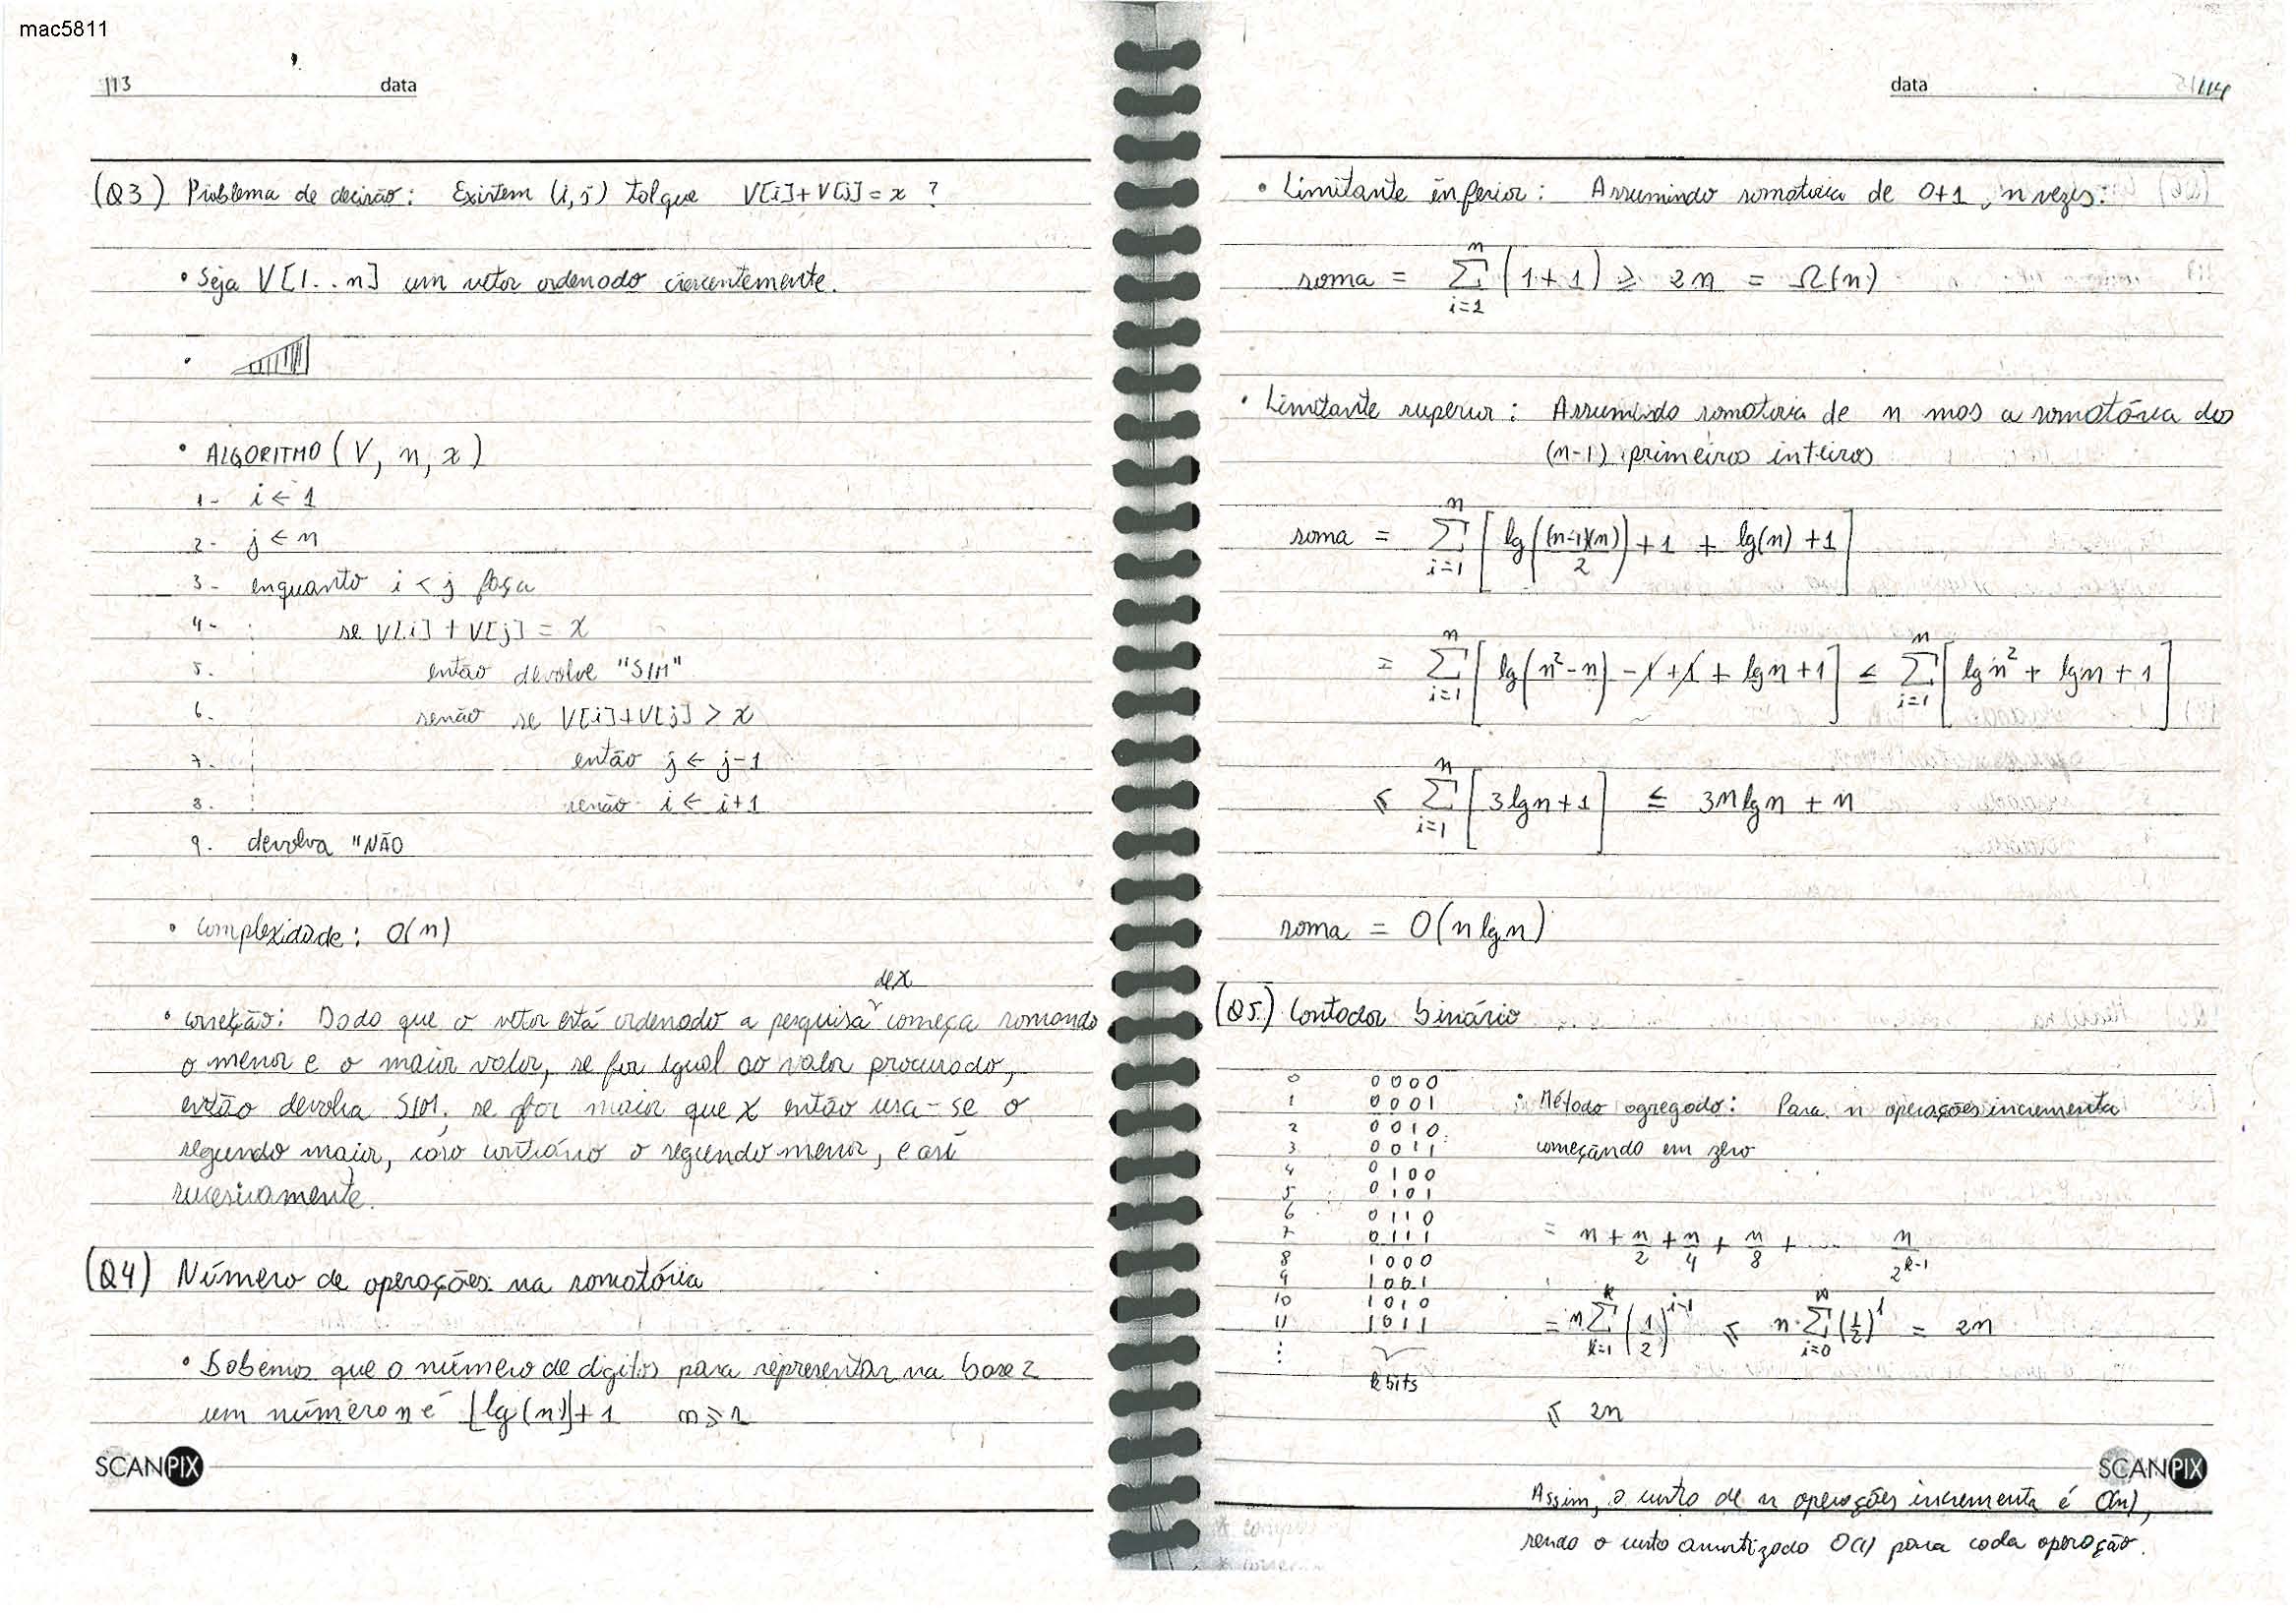 mac5811
113 data
(Q3) Problema de decisão: Existem (i,j) tal que V[i]+V[j] = x ?
• Seja V[1..n] um vetor ordenado crescentemente.
•
• ALGORITMO (V, n, x)
1- i ← 1
2- j ← n
3- enquanto i < j faça
4- se V[i] + V[j] = x
5. então devolve "SIM"
6. senão se V[i]+V[j] > x
7. então j ← j-1
8. senão i ← i+1
9. devolva "NÃO
• complexidade: O(n)
de x
• correção: Dado que o vetor está ordenado a pesquisa começa somando
o menor e o maior valor, se for igual ao valor procurado,
então devolva SIM, se for maior que x então usa-se o
segundo maior, caso contrário o segundo menor, e assi
sucesivamente.
(Q4) Número de operações na somatória
• Sabemos que o número de digitos para representar na base 2
um número n é ⌊lg(n)⌋+1 n ≥ 1
SCANPIX
data 114
• Limitante inferior: Assumindo somatória de 0+1, n vezes:
soma = Σ_{i=1}^{n} (1+1) ≥ 2n = Ω(n)
• Limitante superior: Assumindo somatoria de n mas a somatória dos
(n-1) primeiros inteiros
soma = Σ_{i=1}^{n} [ lg((n-1)(n)/2) + 1 + lg(n) + 1 ]
= Σ_{i=1}^{n} [ lg(n²-n) - 1 + 1 + lg n + 1 ] ≤ Σ_{i=1}^{n} [ lg n² + lg n + 1 ]
≤ Σ_{i=1}^{n} [ 3 lg n + 1 ] ≤ 3n lg n + n
soma = O(n lg n)
(Q5) Contador binário
0 0000
1 0001
2 0010
3 0011
4 0100
5 0101
6 0110
7 0111
8 1000
9 1001
10 1010
11 1011
⋮
k bits
• Método agregado: Para n operações incrementa
começando em zero
= n + n/2 + n/4 + n/8 + ... n/2^{k-1}
= n Σ_{k=1}^{k} (1/2)^{i-1} ≤ n · Σ_{i=0}^{∞} (1/2)^i = 2n
≤ 2n
SCANPIX
Assim, o custo de n operações incrementa é O(n),
sendo o custo amortizado O(1) para cada operação.